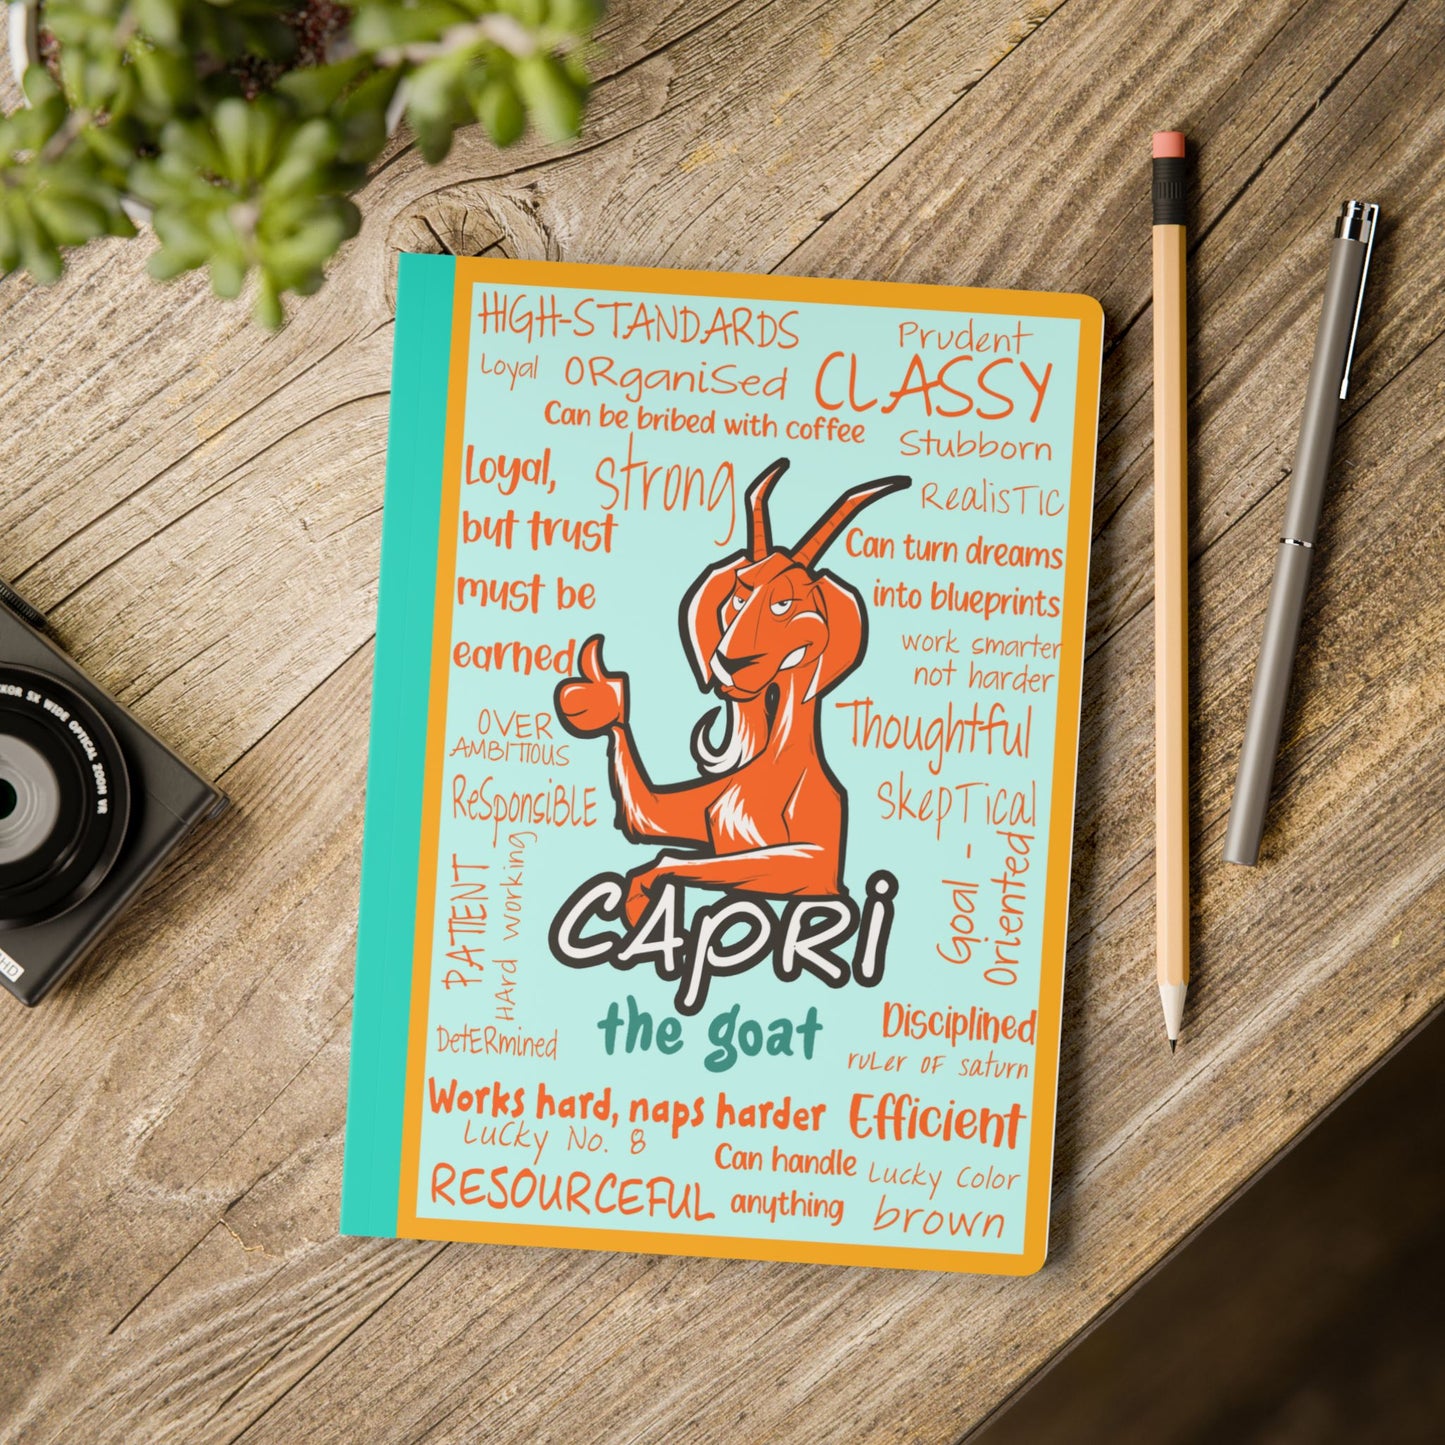 HIGH-STANDARDS
Prudent
Loyal
ORganiSed
CLASSY
Can be bribed with coffee
Stubborn
Loyal,
but trust
must be
earned
strong
RealisTIC
Can turn dreams
into blueprints
work smarter
not harder
OVER
AMBITIOUS
Thoughtful
ResponsiBLE
SkepTical
PATIENT
HArd working
Goal -
Oriented
CAPRi
the goat
DetERmined
Disciplined
ruLer OF saturn
Works hard, naps harder
Efficient
Lucky No. 8
Can handle
anything
Lucky Color
brown
RESOURCEFUL
KOR 5X WIDE OPTICAL ZOOM VR
HD